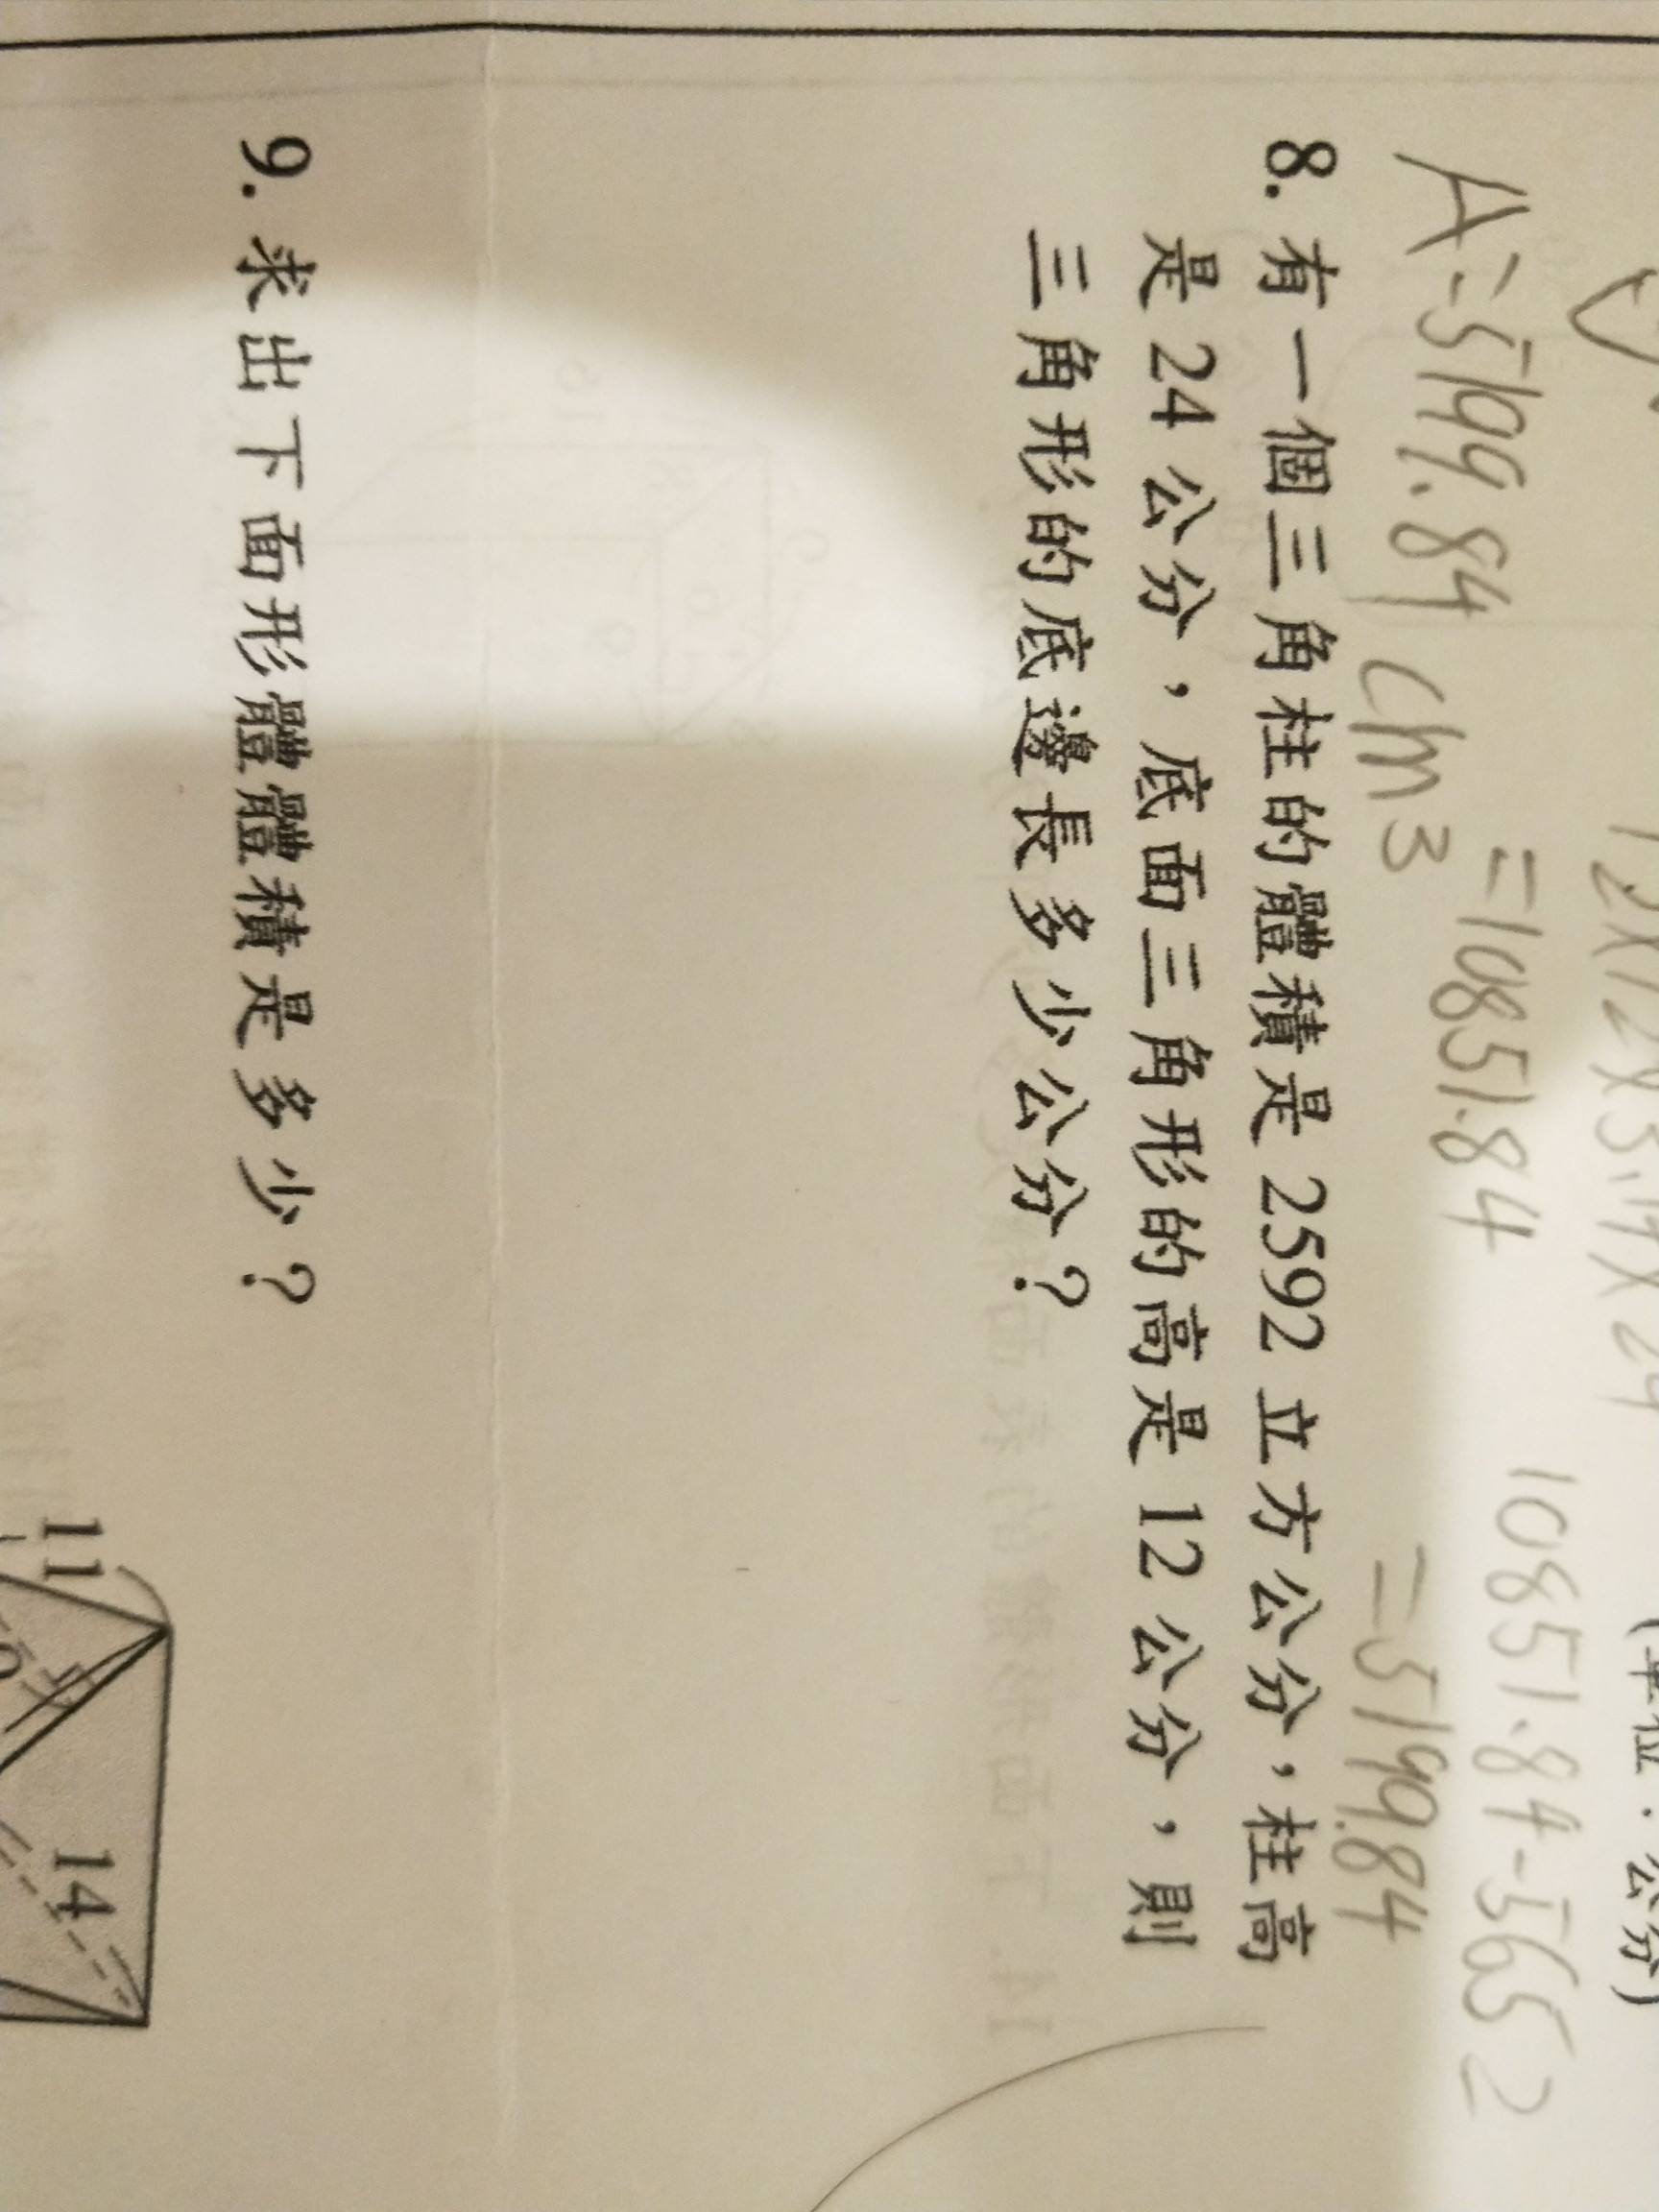 (單位：公分)
12×12×3.14×24
10851.84-5652
=10851.84
=5199.84
A:5199.84 cm3
8. 有一個三角柱的體積是 2592 立方公分，柱高
是 24 公分，底面三角形的高是 12 公分，則
三角形的底邊長多少公分？
9. 求出下面形體體積是多少？
11
14